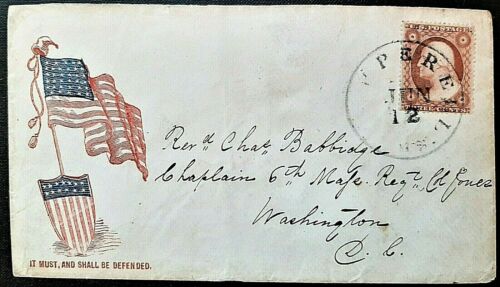 U.S. POSTAGE
THREE CENTS
PEPPERELL
JUN
12
MS.
Revd Chas Babbidge
Chaplain 6th Mass. Regt, Col Jones
Washington
D. C.
IT MUST, AND SHALL BE DEFENDED.